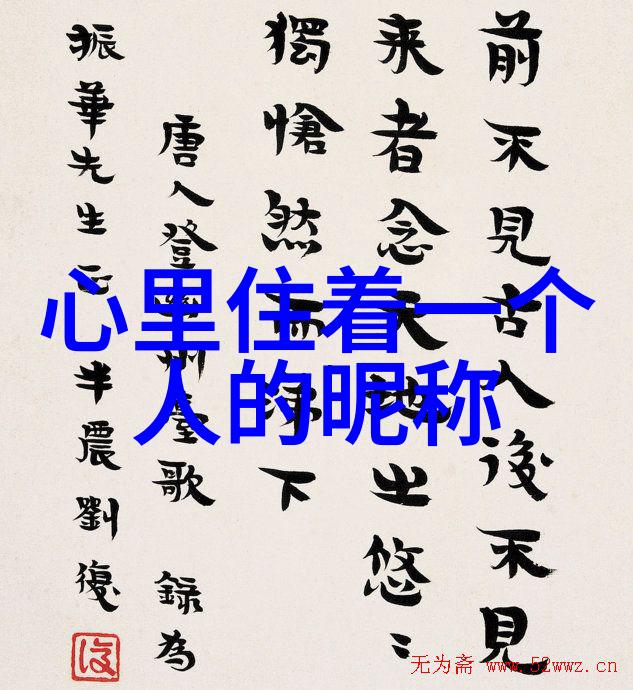 心里住着一个
人的昵称
前不見古人後不見
来者念天地之悠〻
獨愴然而涕下
唐人登幽州臺歌 錄為
振華先生正 半農劉復
无为斋 www.52wwz.cn